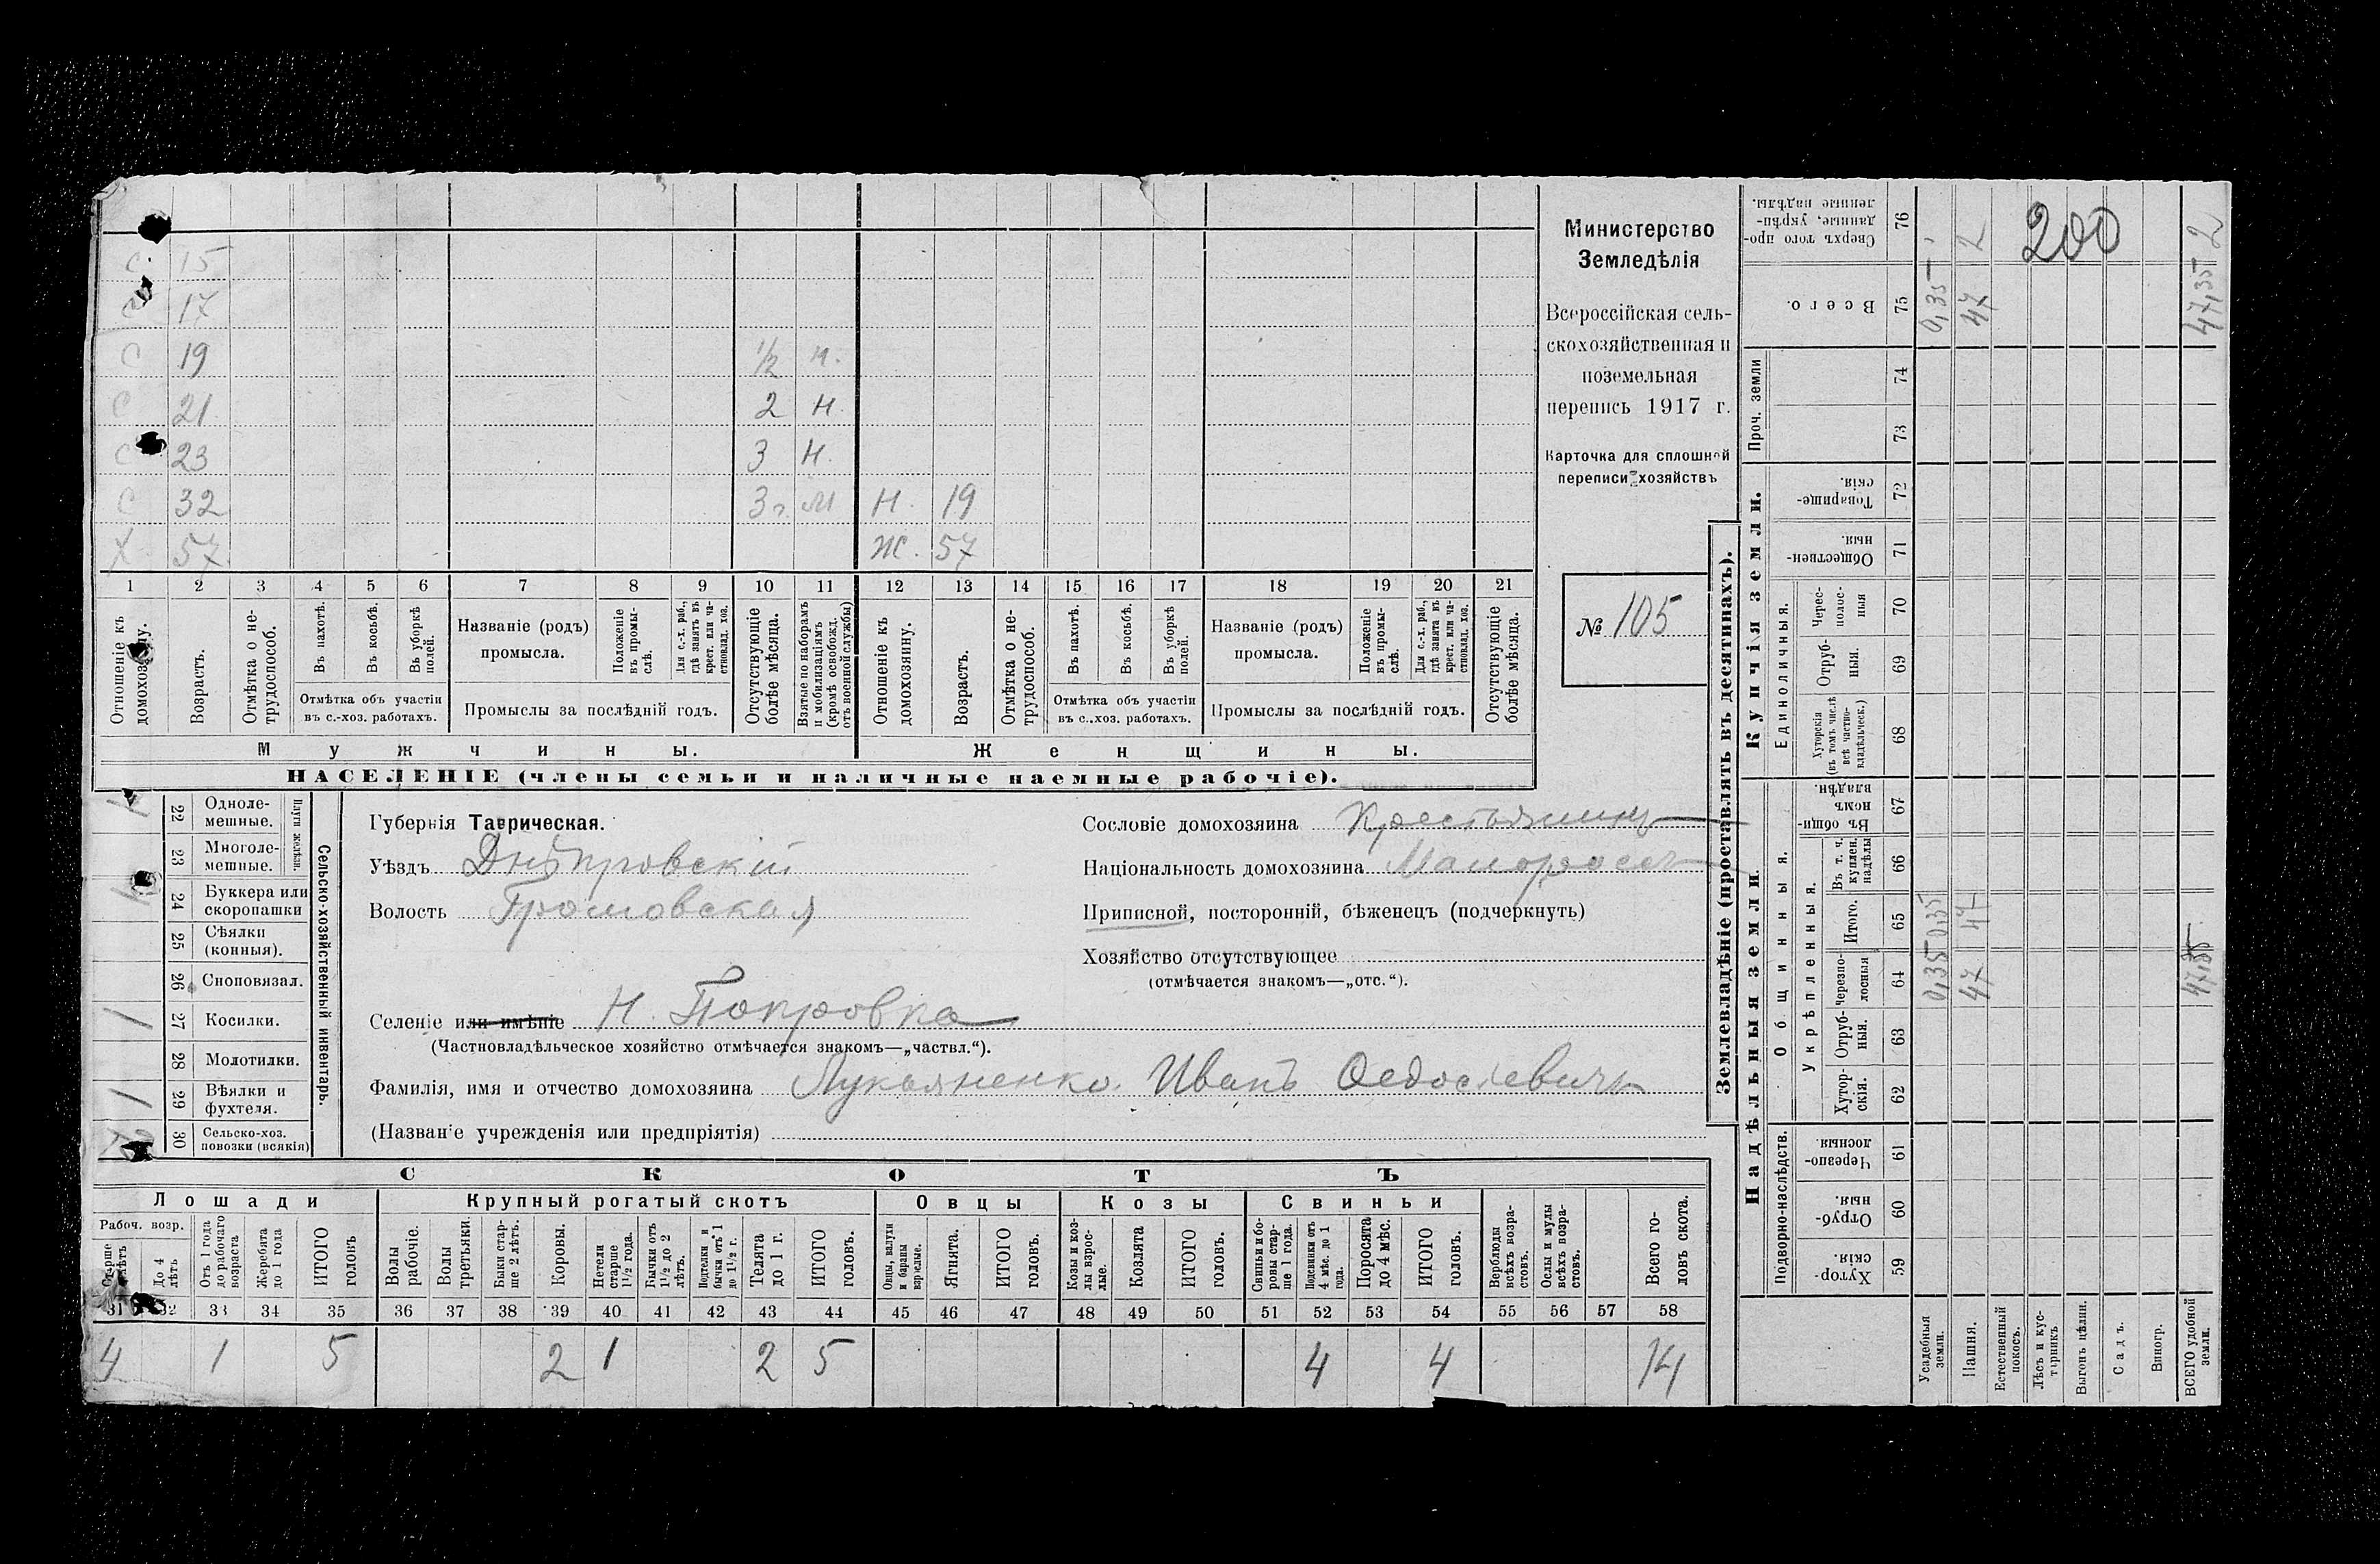 С. 15
17
С 19 1/2 н.
С 21 2 н.
С 23 3 н.
С 32 3 г. м Н. 19
Х. 57 Ж. 57
1 2 3 4 5 6 7 8 9 10 11 12 13 14 15 16 17 18 19 20 21
Отношеніе къ домохозяину.
Возрастъ.
Отмѣтка о нетрудоспособ.
Въ пахотѣ.
Въ косьбѣ.
Въ уборкѣ полей.
Отмѣтка объ участіи въ с.-хоз. работахъ.
Названіе (родъ) промысла.
Положеніе въ промыслѣ.
Для с.-х. раб., гдѣ занятъ въ крест. или частновлад. хоз.
Промыслы за послѣдній годъ.
Отсутствующіе болѣе мѣсяца.
Взятые по наборамъ и мобилизаціямъ (кромѣ освобожд. отъ военной службы)
Отношеніе къ домохозяину.
Возрастъ.
Отмѣтка о нетрудоспособ.
Въ пахотѣ.
Въ косьбѣ.
Въ уборкѣ полей.
Отмѣтка объ участіи въ с.-хоз. работахъ.
Названіе (родъ) промысла.
Положеніе въ промыслѣ.
Для с.-х. раб., гдѣ занята въ крест. или частновлад. хоз.
Промыслы за послѣдній годъ.
Отсутствующіе болѣе мѣсяца.
Мужчины. Женщины.
НАСЕЛЕНІЕ (члены семьи и наличные наемные рабочіе).
Министерство
Земледѣлія
Всероссійская сель-
скохозяйственная и
поземельная
перепись 1917 г.
Карточка для сплошной
переписи хозяйствъ
№ 105
22 Одноле-мешные.
23 Многоле-мешные.
Плуги желѣзн.
24 Буккера или скоропашки
25 Сѣялки (конныя).
26 Сноповязал.
27 Косилки. 1
28 Молотилки.
29 Вѣялки и фухтеля. 1
30 Сельско-хоз. повозки (всякія)
Сельско-хозяйственный инвентарь.
Губернія Таврическая.
Уѣздъ Днѣпровскій
Волость Громовская
Селеніе или имѣніе Н. Покровка
(Частновладѣльческое хозяйство отмѣчается знакомъ—„частвл.“).
Фамилія, имя и отчество домохозяина Лукьяненко. Иванъ Ѳедосіевичъ
(Названіе учрежденія или предпріятія)
Сословіе домохозяина Крестьянинъ
Національность домохозяина Малороссъ
Приписной, посторонній, бѣженецъ (подчеркнуть)
Хозяйство отсутствующее
(отмѣчается знакомъ—„отс.“).
СКОТЪ
Лошади Крупный рогатый скотъ Овцы Козы Свиньи
Рабоч. возр.
Старше 4 лѣтъ
До 4 лѣтъ
Отъ 1 года до рабочаго возраста
Жеребята до 1 года
ИТОГО головъ
Волы рабочіе.
Волы третьяки.
Быки старше 2 лѣтъ.
Коровы.
Нетели старше 1½ года.
Бычки отъ 1½ до 2 лѣтъ.
Подтелки и бычки отъ 1 до 1½ г.
Телята до 1 г.
ИТОГО головъ.
Овцы, валухи и бараны взрослые.
Ягнята.
ИТОГО головъ.
Козы и козлы взрослые.
Козлята
ИТОГО головъ.
Свиньи и боровы старше 1 года.
Подсвинки отъ 4 мѣс. до 1 года.
Поросята до 4 мѣс.
ИТОГО головъ.
Верблюды всѣхъ возрастовъ.
Ослы и мулы всѣхъ возрастовъ.
Всего головъ скота.
31 32 33 34 35 36 37 38 39 40 41 42 43 44 45 46 47 48 49 50 51 52 53 54 55 56 57 58
4 1 5 2 1 2 5 4 4 14
Землевладѣніе (проставлять въ десятинахъ).
Купчія земли.
Надѣльныя земли.
Сверхъ того проданные, укрѣпленные надѣлы. 76
Всего. 75
Проч. земли 74 73
Товарищескія. 72
Общественныя. 71
Единоличныя.
Черес-полос-ныя 70
Отруб-ныя. 69
Хуторскія (въ томъ числѣ всѣ частно-владѣльческ.) 68
Общинныя.
Въ общинномъ владѣн. 67
Укрѣпленныя.
Въ т. ч. куплен. надѣлы 66
Итого. 65
Черезпо-лосныя 64
Отруб-ныя. 63
Хутор-скія. 62
Подворно-наслѣдств.
Черезпо-лосныя. 61
Отруб-ныя. 60
Хутор-скія. 59
Усадебныя земли. 0,35 0,35 0,35
Пашня. 47 47 47 2
Естественный покосъ.
Лѣсъ и кустарникъ
Выгонъ цѣлин.
Садъ.
Виногр.
ВСЕГО удобной земли. 47,35 47,35 2
200